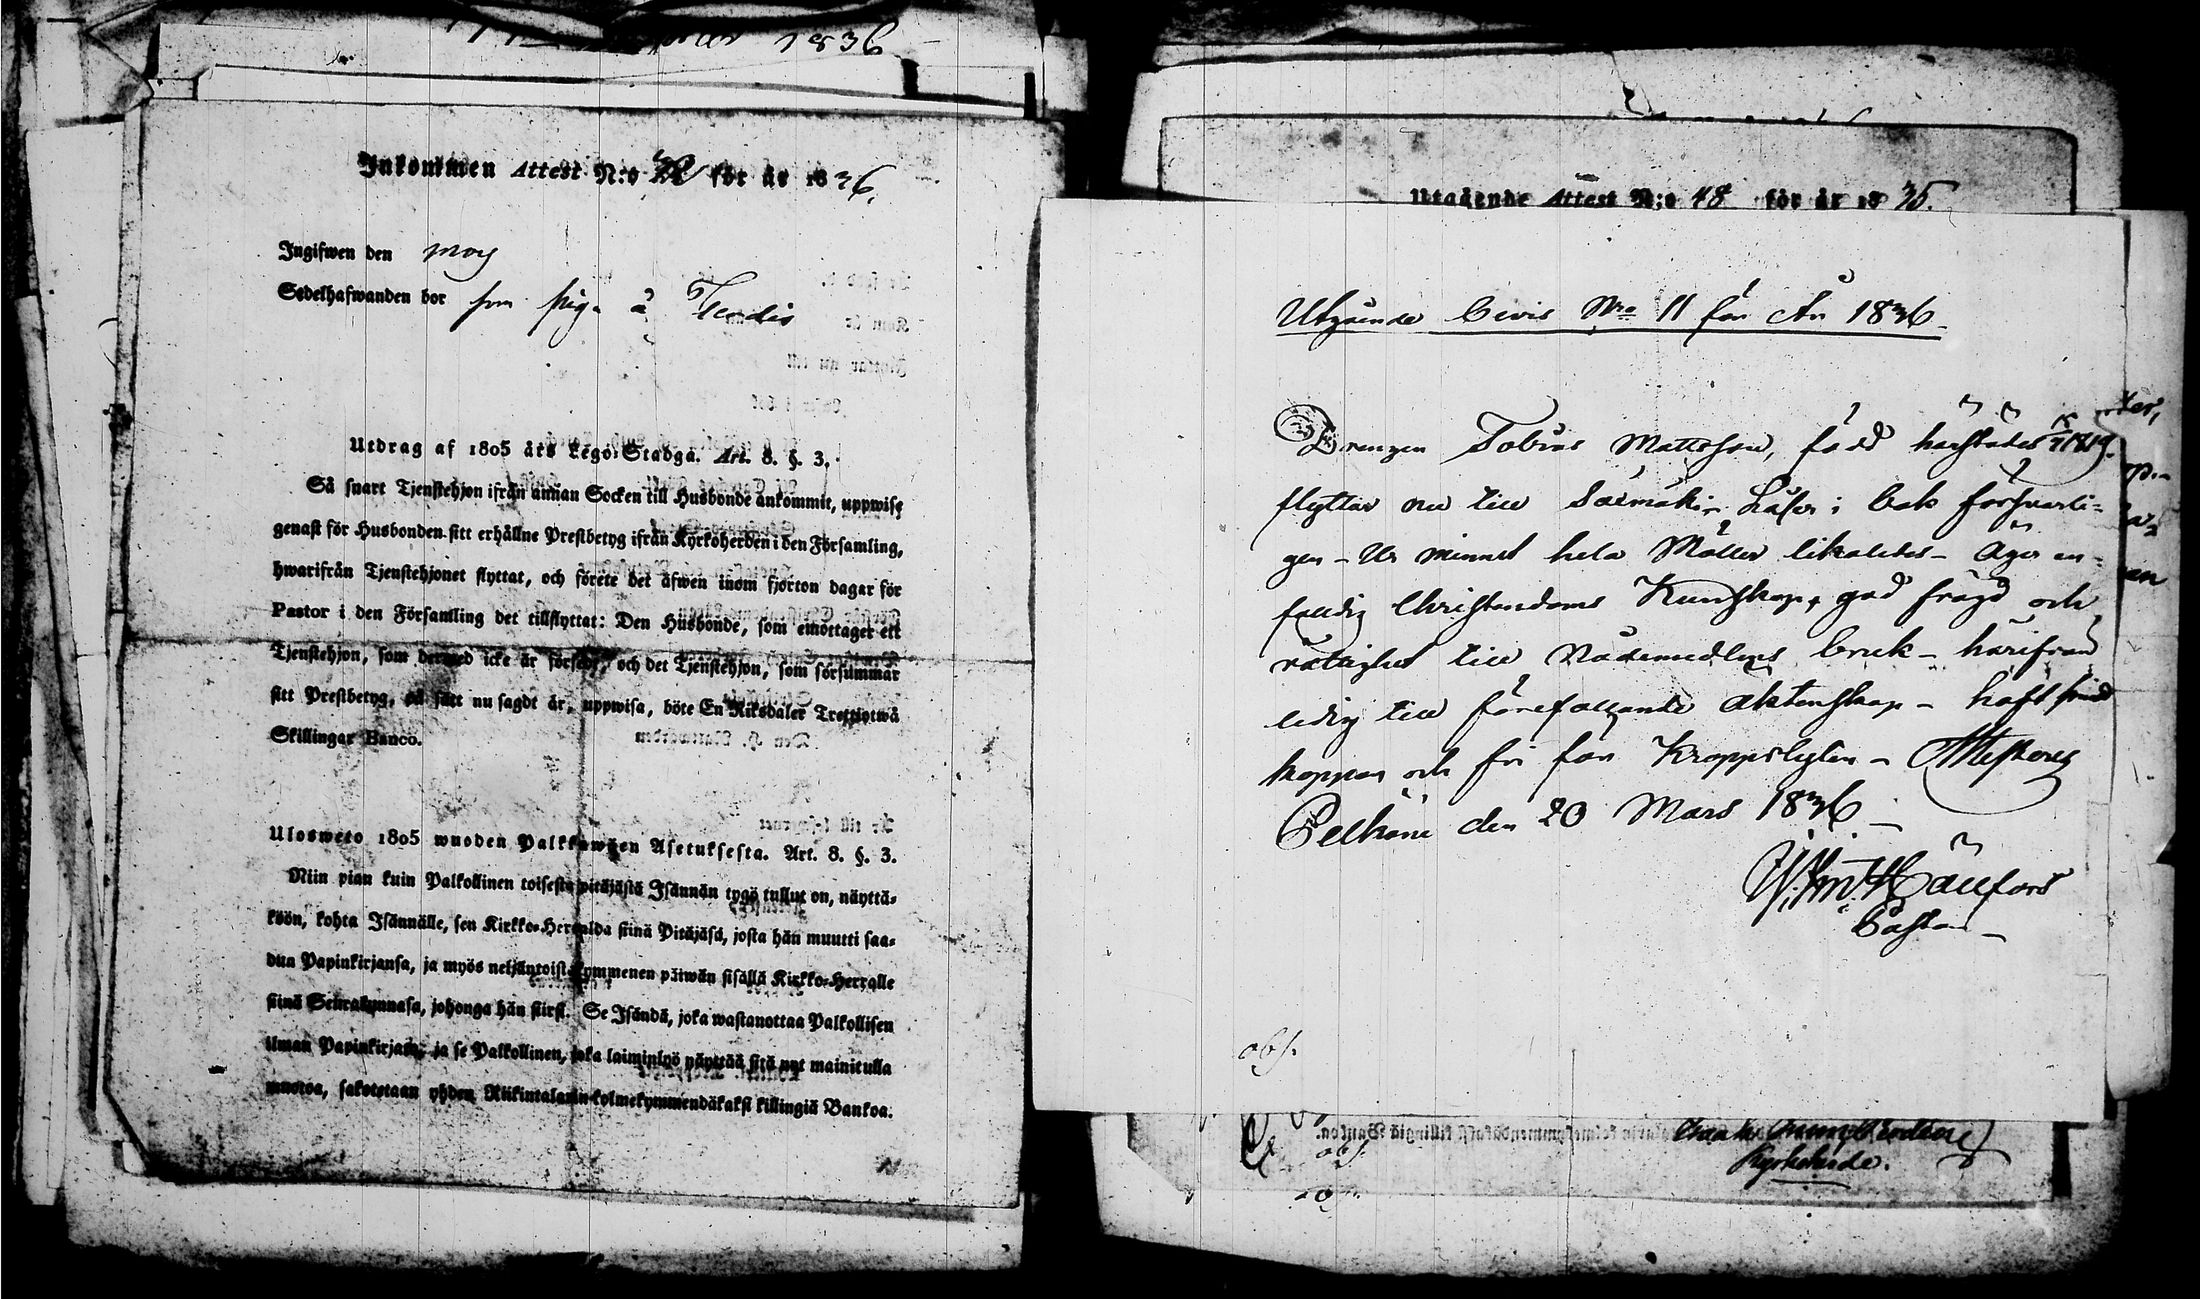 1836
Inkommen Attest N:o för år 1836.
Ingifwen den maj
Sedelhafwanden bor som piga å
Utdrag af 1805 års Lego-Stadga. Art. 8. §. 3.
Så snart Tjenstehjon ifrån annan Socken till Husbonde ankommit, uppwise
genast för Husbonden sitt erhållne Prestbetyg ifrån Kyrkoherden i den Församling,
hwarifrån Tjenstehjonet flyttat, och förete det äfwen inom fjorton dagar för
Pastor i den Församling det tillflyttat: Den Husbonde, som emottager ett
Tjenstehjon, som dermed icke är försedt, och det Tjenstehjon, som försummar
sitt Prestbetyg, på sätt nu sagdt är, uppwisa, böte En Riksdaler Trettiotwå
Skillingar Banco.
Ulosweto 1805 wuoden Palkkawäen Asetuksesta. Art. 8. §. 3.
Niin pian kuin Palkollinen toisesta pitäjästä Isännän tygö tullut on, näyttä-
köön, kohta Isännälle, sen Kirkko-Herralda siinä Pitäjäsä, josta hän muutti saa-
dun Papinkirjansa, ja myös neljäntoistakymmenen päiwän sisällä Kirkko-Herralle
siinä Seurakunnasa, johonga hän siirsi. Se Isändä, joka wastanottaa Palkollisen
ilman Papinkirjata, ja se Palkollinen, joka laiminlyö näyttää sitä nyt mainitulla
muotoa, sakotetaan yhden Riikintalarin kolmekymmendäkaksi killingiä Bankoa.
Utgående Attest N:o 48 för år 1835.
Utgående Bevis Nro 11 för År 1836
Drengen Tobias Mattsson, född härstädes
flyttar nu till Säxmäki. Läser i bok försvarli-
gen - Ur minnet hela Möller likaledes - Äger en-
faldig Christendoms Kunskap, god frägd och
rätighet till Nådemedlens bruk - härifrån
ledig till förefallande äktenskap - haft
koppor och fri för Kroppslyten - Attesterar
Pelkäne den 20 Mars 1836
Hällfors
Pastor
obs.
obs.
Kyrkoherde.